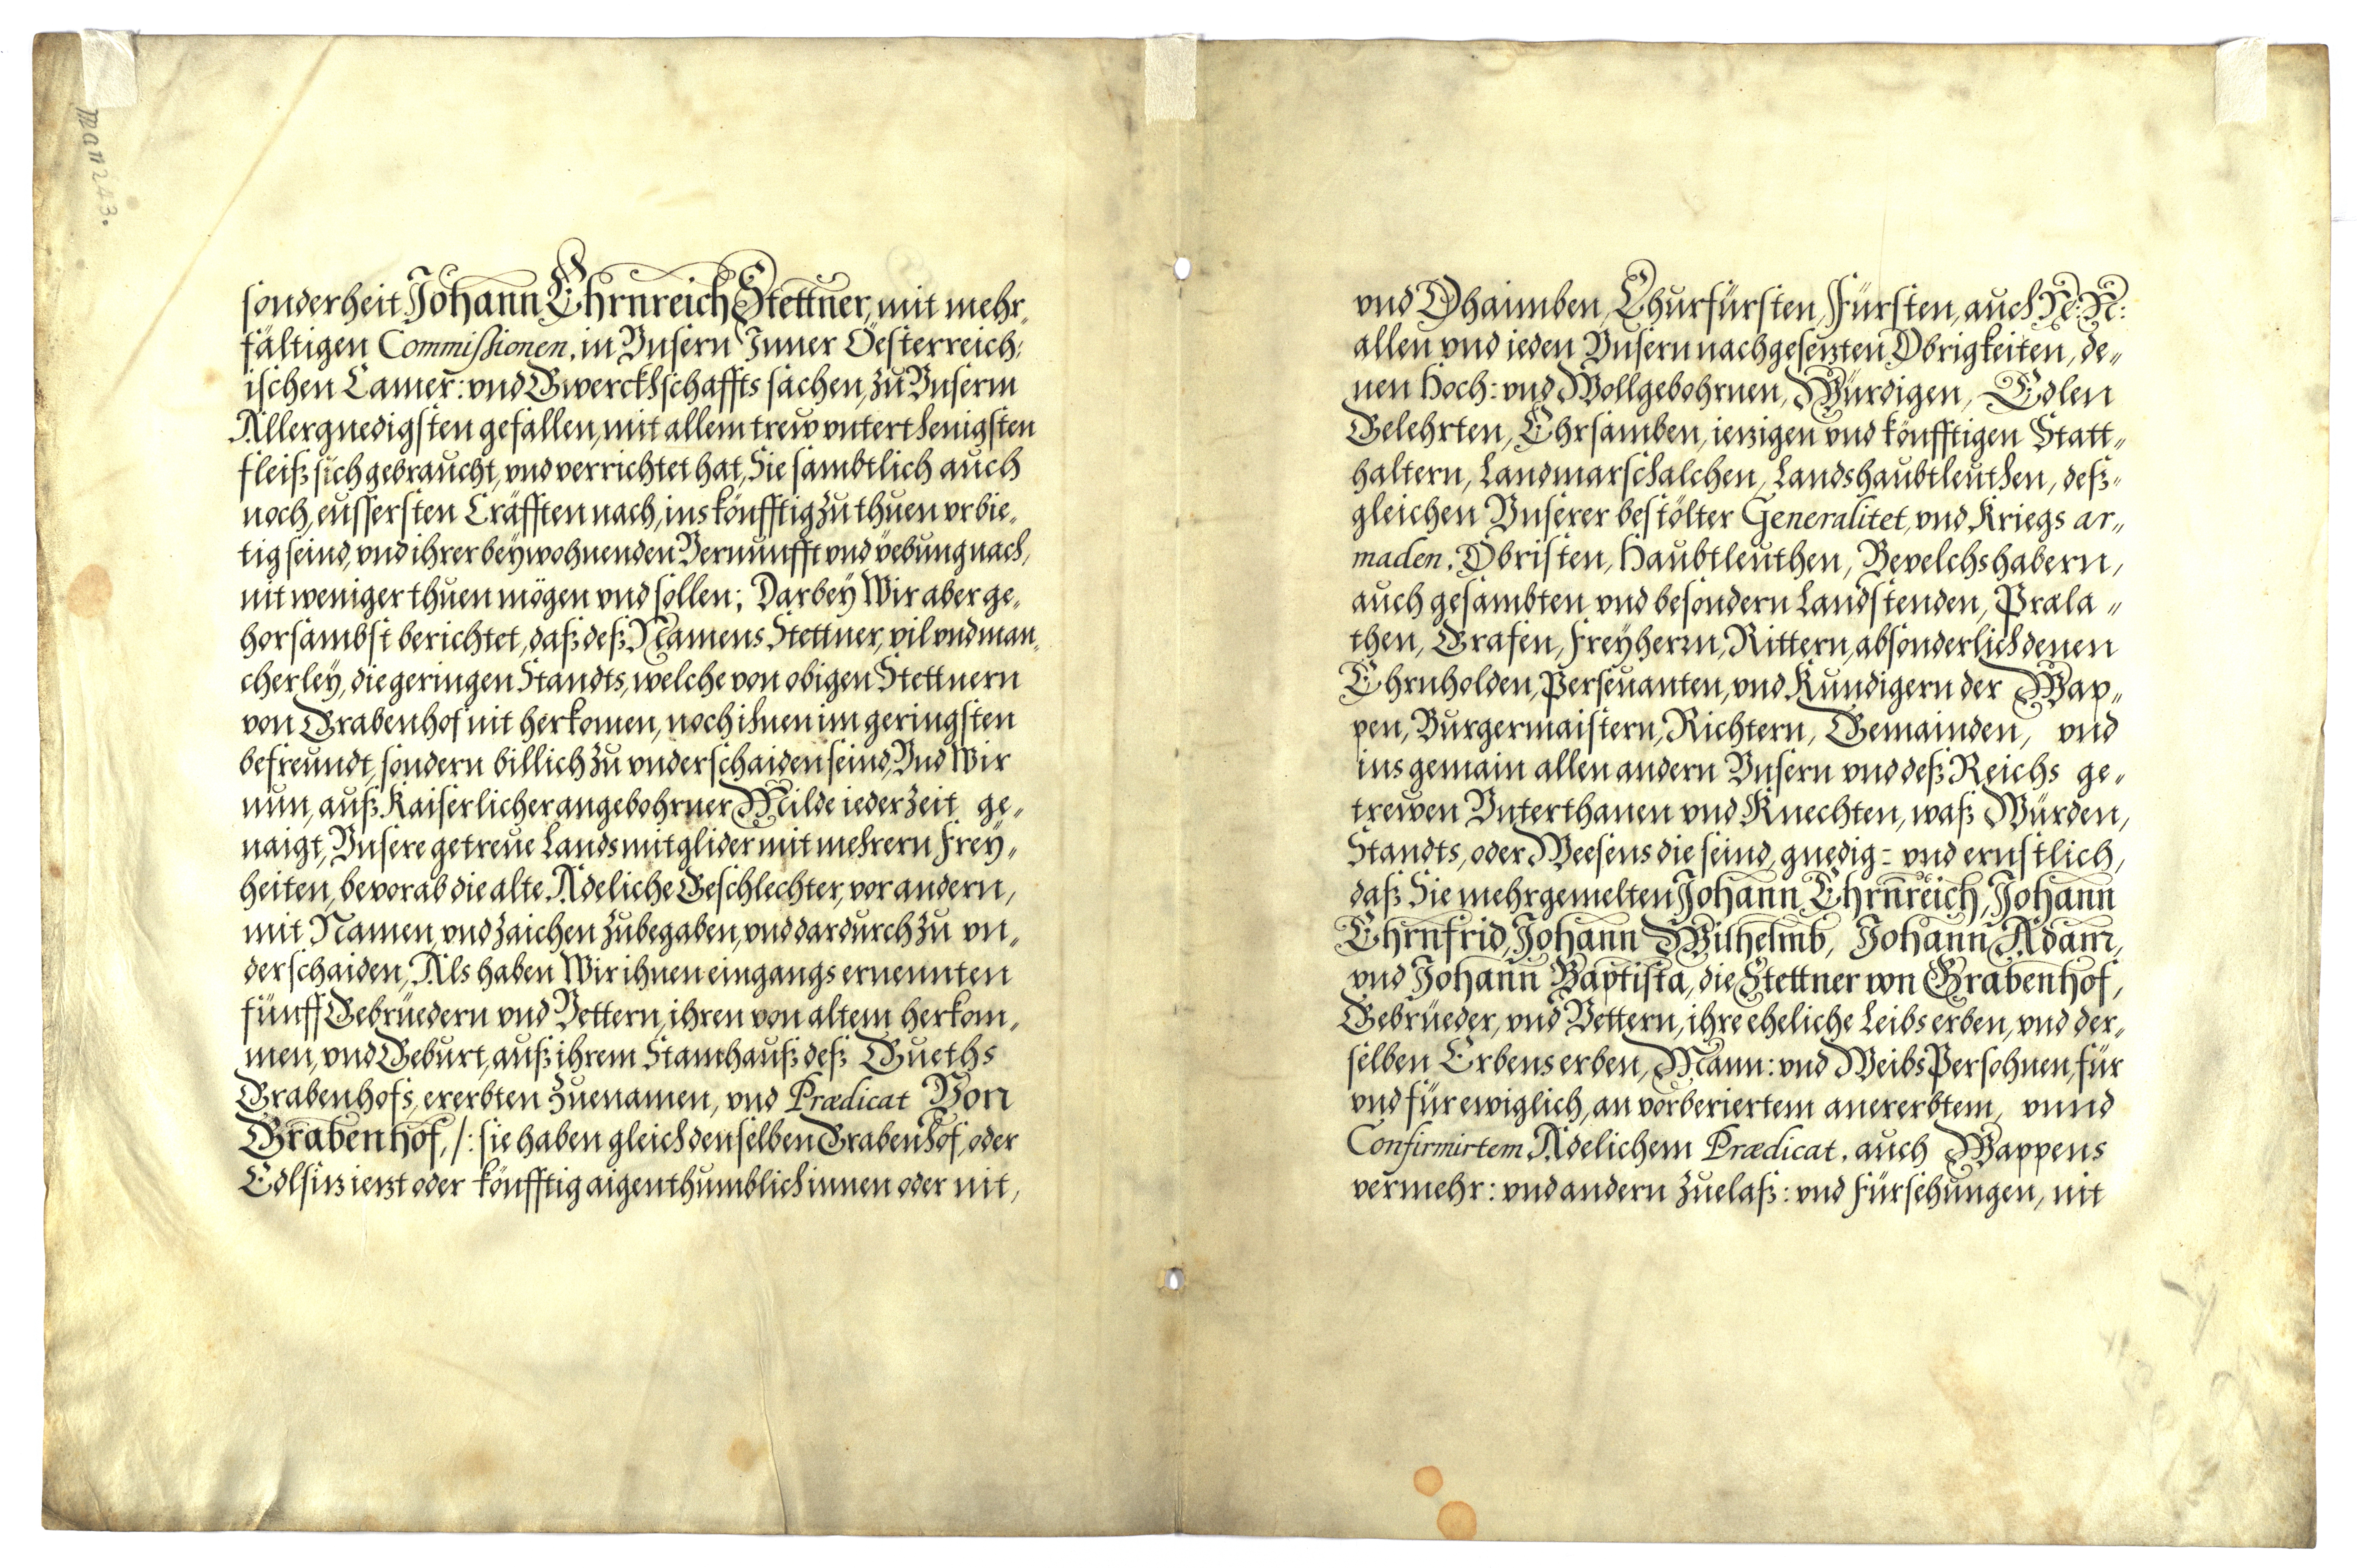 Man 243.
sonderheit Johann Ehrnreich Stettner, mit mehr„
fältigen Commissionen, in Vnsern Inner Öesterreich:
ischen Camer: vnd Gwerckhschaffts sachen, zu Vnserm
Allergnedigsten gefallen, mit allem trew vnterthenigsten
fleiß sich gebraucht, vnd verrichtet hat, Sie sambtlich auch
noch, eussersten Cräfften nach, ins könfftig zu thuen vrbie„
tig seind, vnd ihrer beywohnenden Vernunfft vnd vebung nach,
nit weniger thuen mögen vnd sollen; Darbey Wir aber ge„
horsambst berichtet, daß deß Namens Stettner, vil vnd man„
cherley, die geringen Standts, welche von obigen Stettnern
von Grabenhof nit herkomen, noch ihnen im geringsten
befreundt, sondern billich zu vnderschaiden seind, Vnd Wir
nun, auß Kaiserlicher angebohrner Milde ieder Zeit ge„
naigt, Vnsere getreue Landsmitglider mit mehrern Frey„
heiten, bevorab die alte Adeliche Geschlechter, vor andern,
mit Namen, vnd Zaichen zubegaben, vnd dardurch zu vn„
derschaiden, Als haben Wir ihnen eingangs ernennten
fünff Gebrüedern vnd Vettern, ihren von altem herkom„
men, vnd Geburt, auß ihrem Stamhauß deß Gueths
Grabenhofs, ererbten Zuenamen, vnd Prædicat Von
Grabenhof, /: sie haben gleich denselben Grabenhof, oder
Edlsitz ietzt oder könfftig aigenthumblich innen oder nit,
vnd Dhaimben, Churfürsten, Fürsten, auch N: N:
allen vnd ieden Vnsern nachgesetzten Obrigkeiten, de„
nen Hoch: vnd Wollgebohrnen, Würdigen, Edlen
Gelehrten, Ehrsamben, ietzigen vnd könfftigen Statt„
haltern, Landmarschalchen, Landshaubtleuthen, deß„
gleichen Vnserer bestölter Generalitet, vnd Kriegs ar„
maden, Obristen, Haubtleuthen, Bevelchshabern,
auch gesambten vnd besondern Landstenden, Præla„
then, Grafen, Freyherrn, Rittern, absonderlich denen
Ehrnholden, Perseuanten, vnd Kundigern der Wap„
pen, Burgermaistern, Richtern, Gemainden, vnd
insgemain allen andern Vnsern vnd deß Reichs ge„
trewen Vnterthanen vnd Knechten, waß Würden,
Standts, oder Weesens die seind, gnedig= vnd ernstlich,
daß Sie mehrgemelten Johann Ehrnreich, Johann
Ehrnfrid, Johann Wilhelmb, Johann Adam,
vnd Johann Baptista, die Stettner von Grabenhof,
Gebrüeder, vnd Vettern, ihre eheliche Leibs erben, vnd der„
selben Erbens erben, Mann: vnd Weibs Persohnen, für
vnd für ewiglich, an vorberiertem anererbtem, vnnd
Confirmirtem Adelichem Prædicat, auch Wappens
vermehr: vnd andern Zuelaß: vnd Fürsehungen, nit